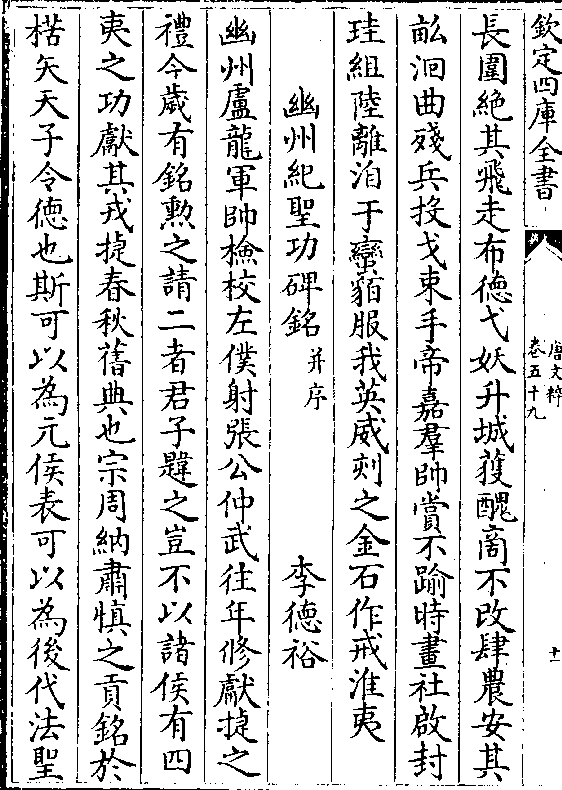 欽定四庫全書
長圍絶其飛走布德弋妖升城獲醜啇不改肆農安其
畝洄曲殘兵投戈束手帝嘉羣帥賞不踰時畫社啟封
珪組陸離洎于蠻貊服我英威刻之金石作戒淮夷
幽州紀聖功碑銘并序 李德裕
幽州盧龍軍帥檢校左僕射張公仲武往年修獻捷之
禮今歲有銘勲之請二者君子韙之豈不以諸侯有四
夷之功獻其戎捷春秋舊典也宗周納肅慎之貢銘於
楛矢天子令德也斯可以為元侯表可以為後代法聖
唐文粹
卷五十九
十一